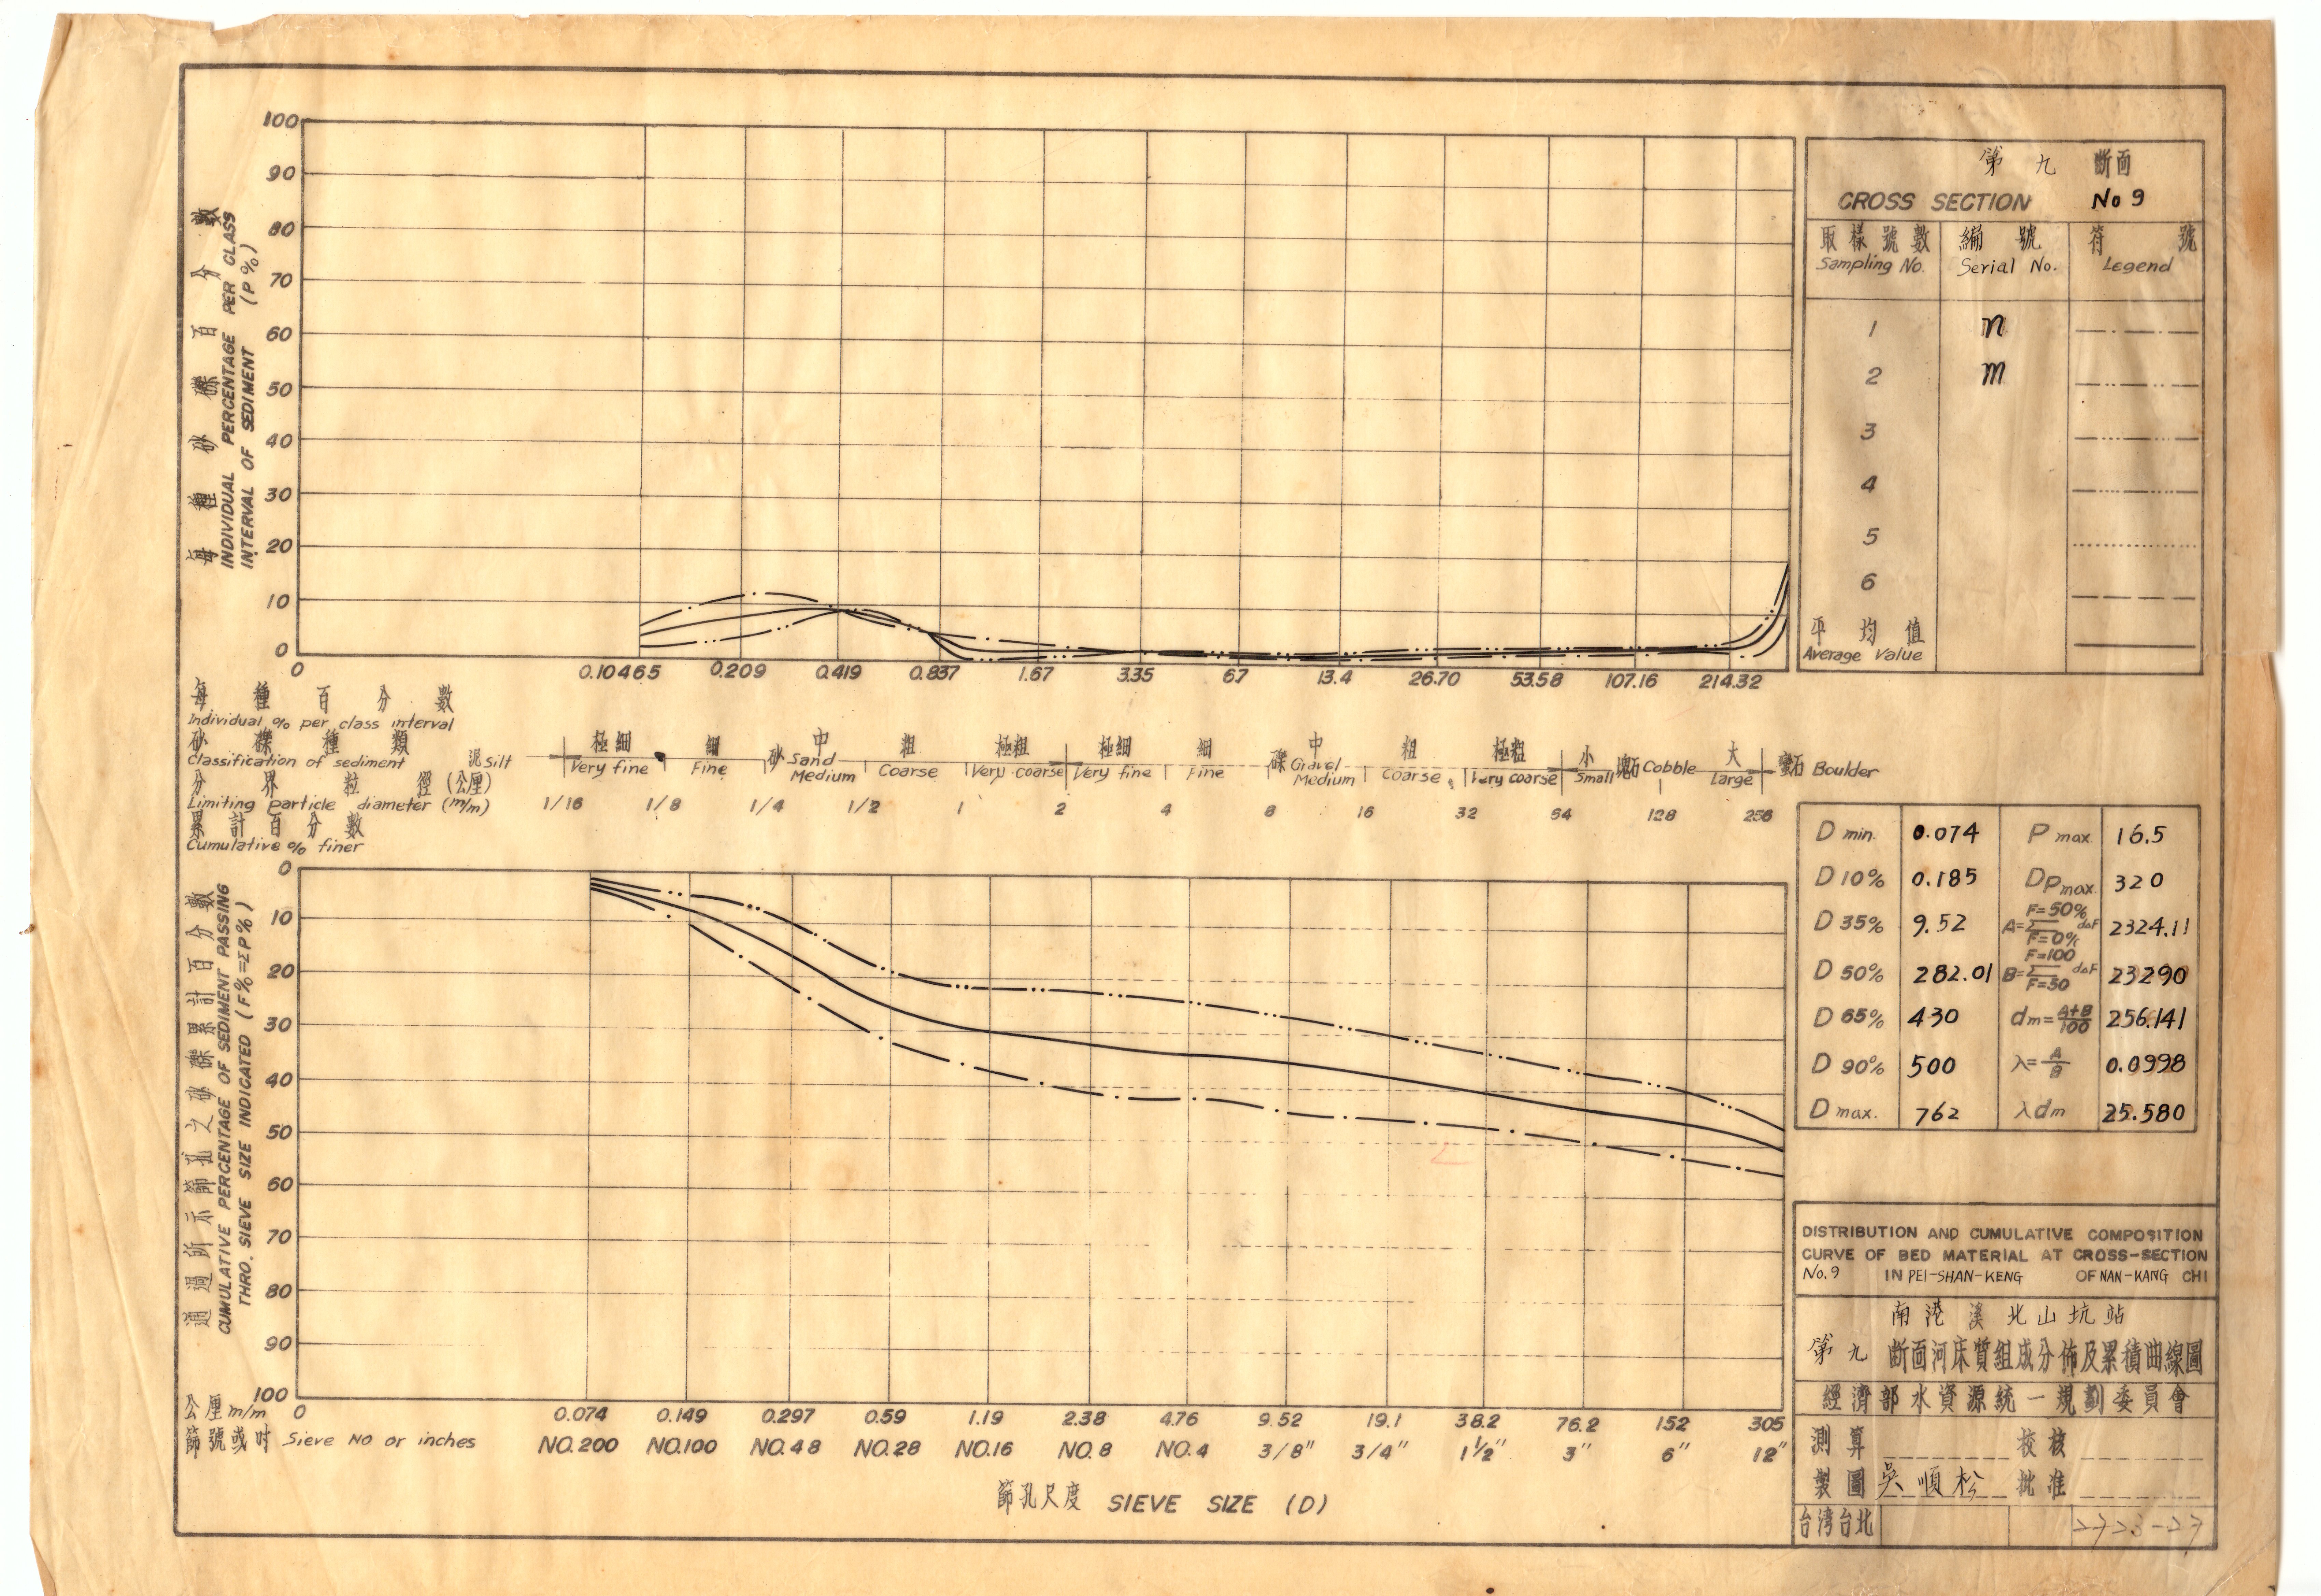 100
90
80
70
60
50
40
30
20
10
0
每種砂礫百分數
INDIVIDUAL PERCENTAGE PER CLASS
INTERVAL OF SEDIMENT (P%)
0 0.10465 0.209 0.419 0.837 1.67 3.35 6.7 13.4 26.70 53.58 107.16 214.32
每種百分數
Individual % per class interval
砂礫種類
Classification of sediment
泥 Silt 極細 Very fine 細 Fine 砂 Sand 中 Medium 粗 Coarse 極粗 Very coarse 極細 Very fine 細 Fine 礫 Gravel 中 Medium 粗 Coarse 極粗 Very coarse 小 Small 塊石 Cobble 大 Large 蠻石 Boulder
分界粒徑(公厘)
Limiting particle diameter (m/m) 1/16 1/8 1/4 1/2 1 2 4 8 16 32 64 128 256
累計百分數
Cumulative % finer
0
10
20
30
40
50
60
70
80
90
100
通過所示篩孔之砂礫累計百分數
CUMULATIVE PERCENTAGE OF SEDIMENT PASSING
THRO. SIEVE SIZE INDICATED (F%=ΣP%)
公厘 m/m 0 0.074 0.149 0.297 0.59 1.19 2.38 4.76 9.52 19.1 38.2 76.2 152 305
篩號或吋 Sieve NO or inches NO.200 NO.100 NO.48 NO.28 NO.16 NO.8 NO.4 3/8" 3/4" 1½" 3" 6" 12"
篩孔尺度 SIEVE SIZE (D)
第九断面
CROSS SECTION No 9
取樣號數 編號 符號
Sampling No. Serial No. Legend
1 n
2 m
3
4
5
6
平均值
Average Value
D min. 0.074 P max. 16.5
D 10% 0.185 Dp max. 320
D 35% 9.52 A=Σ F=50% F=0% d△F 2324.11
D 50% 282.01 B=Σ F=100 F=50 d△F 23290
D 65% 430 dm=A+B/100 256.141
D 90% 500 λ=A/B 0.0998
D max. 762 λdm 25.580
DISTRIBUTION AND CUMULATIVE COMPOSITION
CURVE OF BED MATERIAL AT CROSS-SECTION
No.9 IN PEI-SHAN-KENG OF NAN-KANG CHI
南港溪北山坑站
第九断面河床質組成分佈及累積曲線圖
經濟部水資源統一規劃委員會
測算 校核
製圖 吳順松 批准
台湾台北